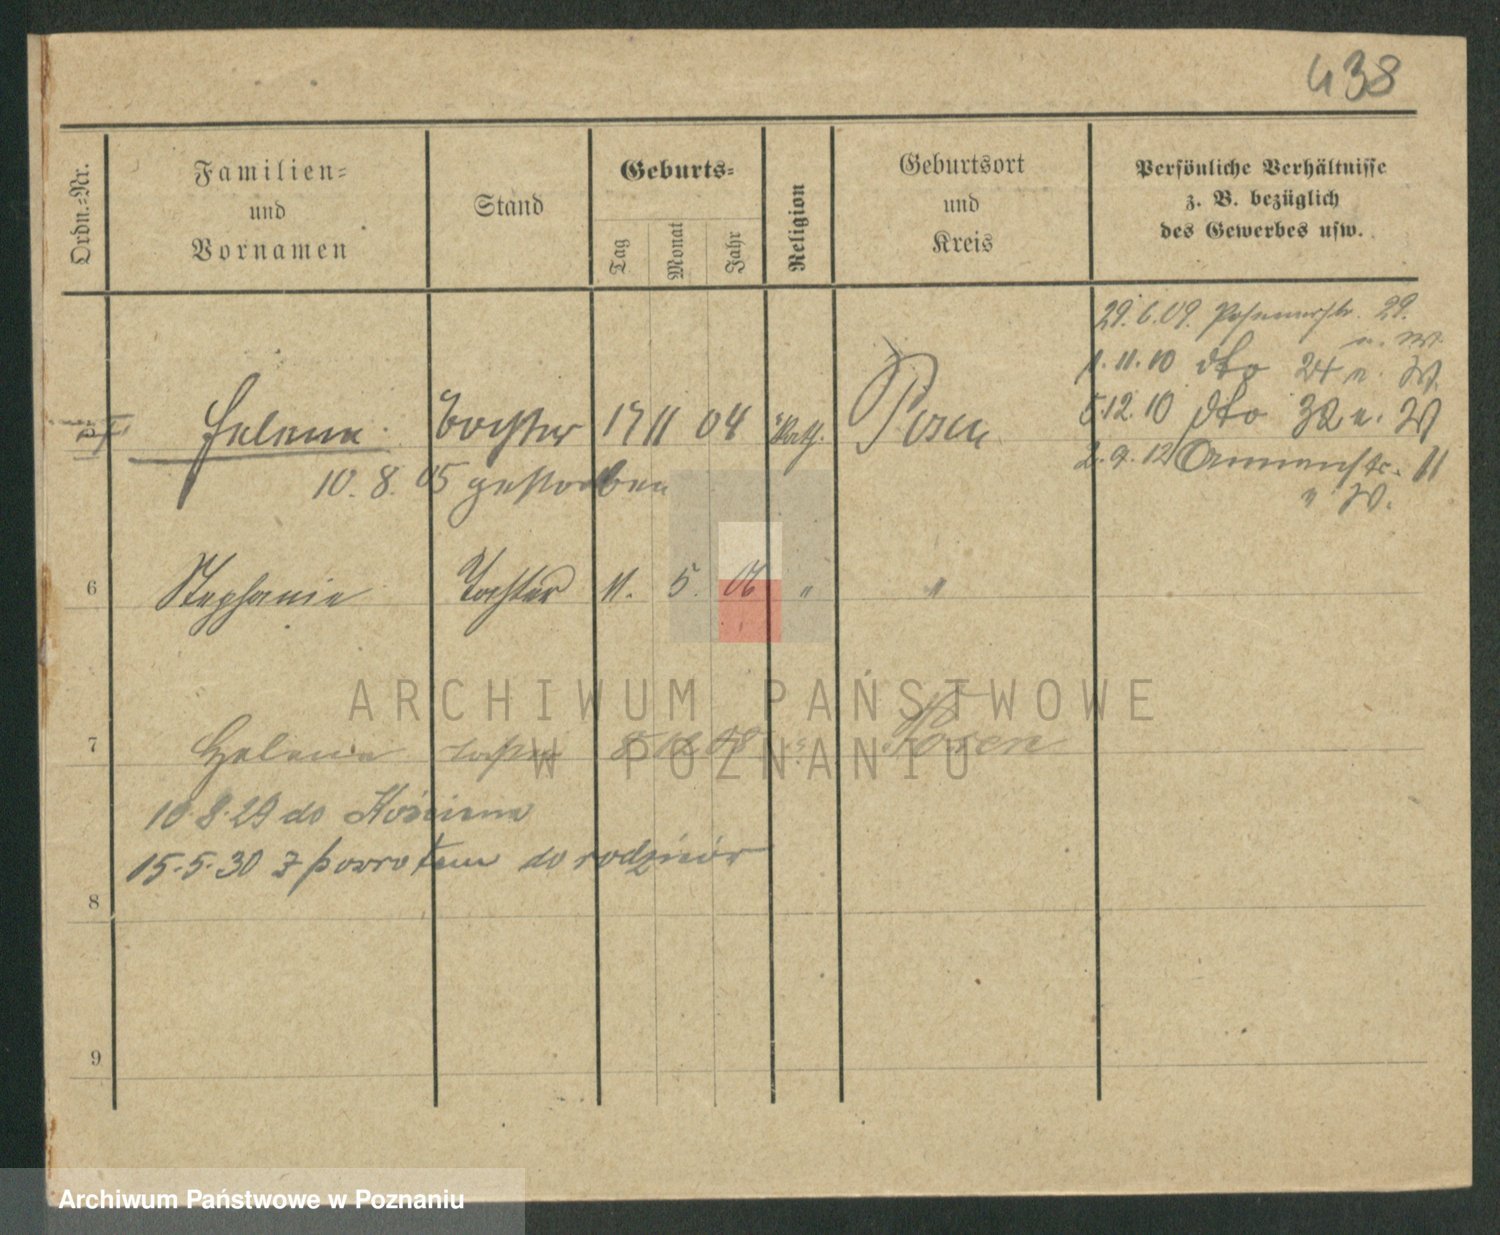 438
Ordn.-Nr.
Familien-
und
Vornamen
Stand
Geburts-
Tag
Monat
Jahr
Religion
Geburtsort
und
Kreis
Persönliche Verhältnisse
z. B. bezüglich
des Gewerbes usw.
29.6.09. Posenerstr. 29.
u. W.
1.11.10 dto 24 u. W.
5.12.10 dto 32 u. W
5 Helena Tochter 17 11 04 kath. Posen
2.9.12 Annenstr. 11
u W.
10. 8. 05 gestorben
6 Stephanie Tochter 11. 5. 06 " "
ARCHIWUM PAŃSTWOWE
W POZNANIU
7 Helena Tochter 08 " Posen
10.8.29 do Kościana
15.5.30 z powrotem do rodziców
8
9
Archiwum Państwowe w Poznaniu